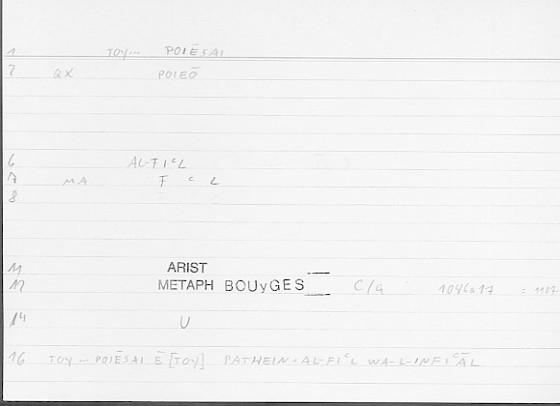 1 TOY... POIĒSAI
2 QX POIEŌ
6 AL-FIᶜL
7 MA F ᶜ L
8
11 ARIST
12 METAPH BOUyGES C/a 1046a17 :
14 U
16 TOY... POIĒSAI Ē [TOY] PATHEIN · AL-FIᶜL WA-L-INFIᶜĀL